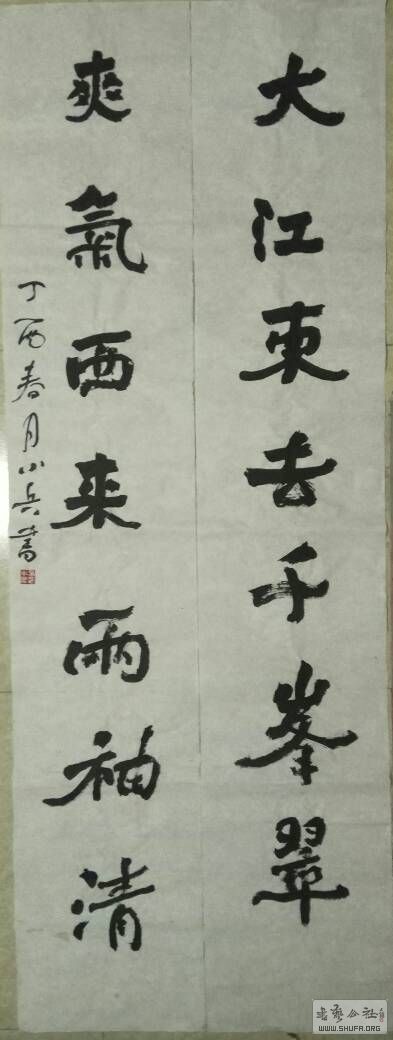 大江東去千峯翠
爽氣西來兩袖清
丁酉春月小兵書
WWW.SHUFA.ORG